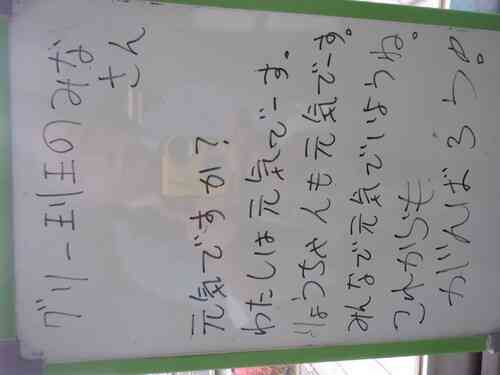 のみな
さん
元気ですか?
わたしは元気でーす。
りょうちゃんも元気でーす。
みんなで元気でいようね。
これからも
がんばろう